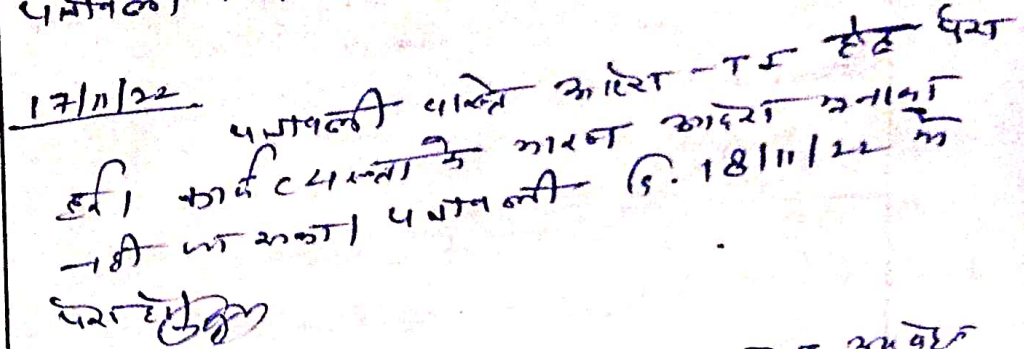 पत्रावली
17/11/22
पत्रावली वास्ते आदेश - TI हेतु पेश
हुई। कार्य व्यस्तता के कारण आदेश सुनाया
नही जा सका। पत्रावली दि. 18/11/22 को
पेश हो।